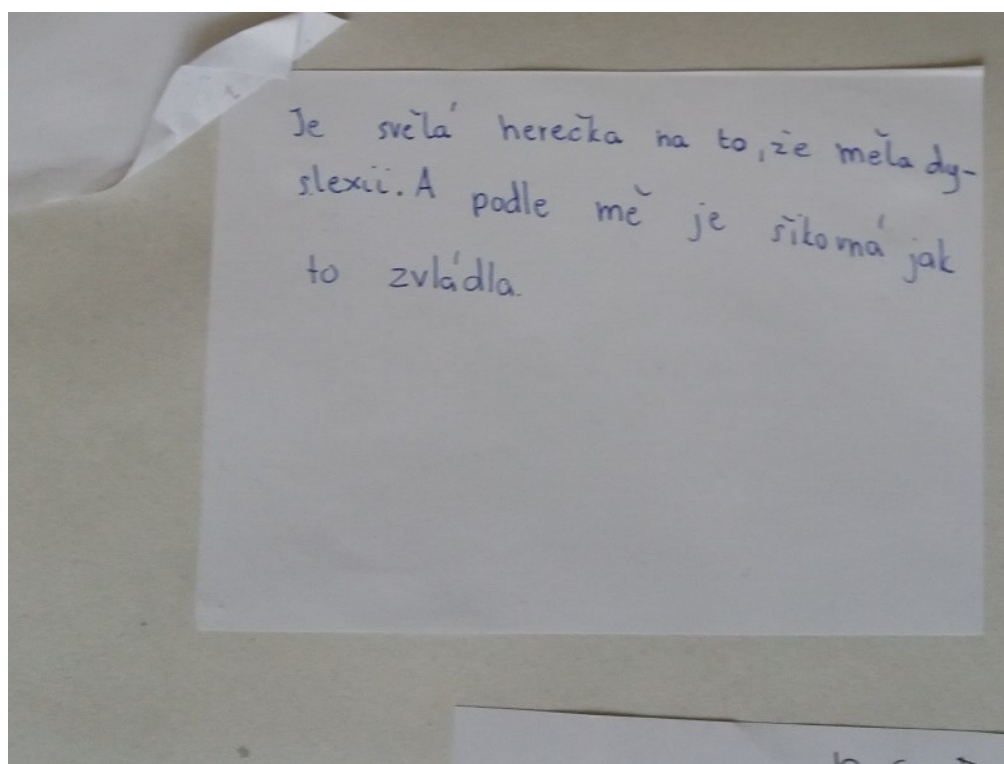 Je svělá herečka na to, že měla dy-
slexii. A podle mě je šikovná jak
to zvládla.